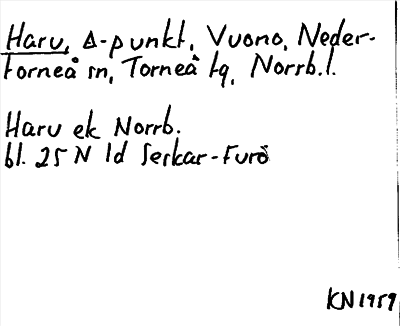 Haru, Δ-punkt, Vuono, Neder-
torneå sn, Torneå tg, Norrb.l.
Haru ek Norrb.
bl. 25 N ld Serkar-Furö
KN 1959